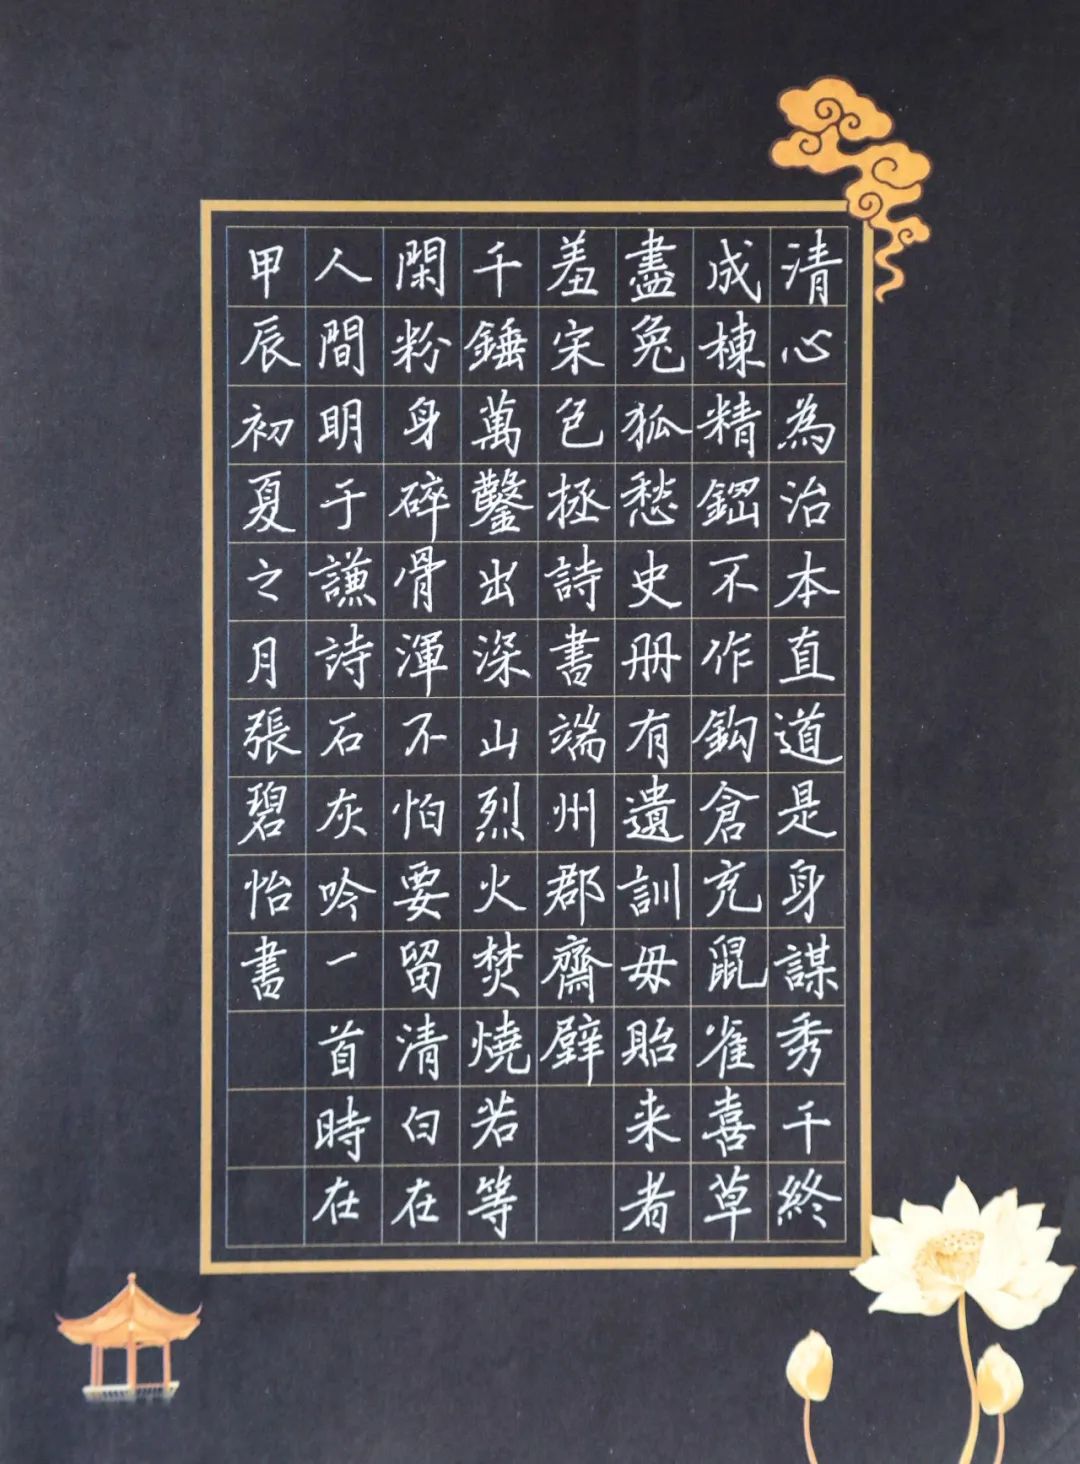 清心為治本直道是身謀秀千終
成棟精鋼不作鈎倉充鼠雀喜草
盡兔狐愁史冊有遺訓毋貽来者
羞宋包拯詩書端州郡齋壁
千錘萬鑿出深山烈火焚燒若等
閑粉身碎骨渾不怕要留清白在
人間明于謙詩石灰吟一首時在
甲辰初夏之月張碧怡書